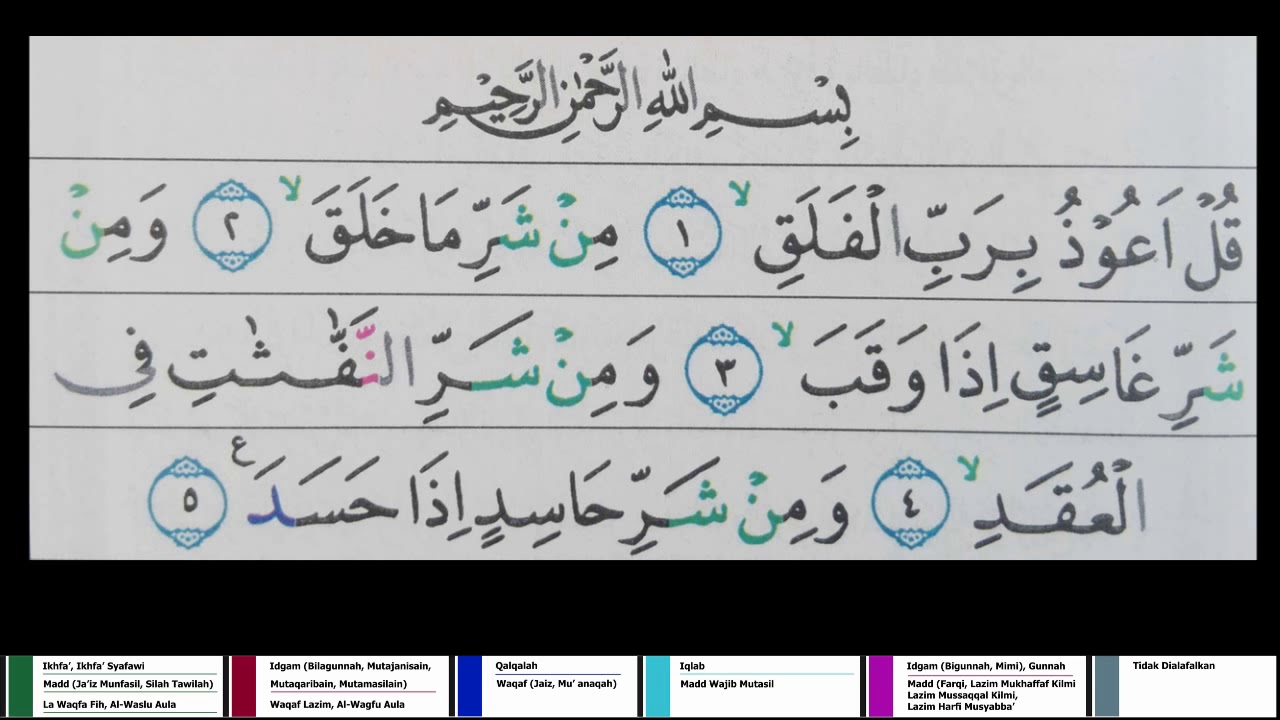 بِسْمِ اللهِ الرَّحْمٰنِ الرَّحِيْمِ
قُلْ اَعُوْذُ بِرَبِّ الْفَلَقِۙ ١ مِنْ شَرِّ مَا خَلَقَۙ ٢ وَمِنْ
شَرِّ غَاسِقٍ اِذَا وَقَبَۙ ٣ وَمِنْ شَرِّ النَّفّٰثٰتِ فِى
الْعُقَدِۙ ٤ وَمِنْ شَرِّ حَاسِدٍ اِذَا حَسَدَ ࣖ ٥
Ikhfa’, Ikhfa’ Syafawi
Madd (Ja’iz Munfasil, Silah Tawilah)
La Waqfa Fih, Al-Waslu Aula
Idgam (Bilagunnah, Mutajanisain,
Mutaqaribain, Mutamasilain)
Waqaf Lazim, Al-Wagfu Aula
Qalqalah
Waqaf (Jaiz, Mu’ anaqah)
Iqlab
Madd Wajib Mutasil
Idgam (Bigunnah, Mimi), Gunnah
Madd (Farqi, Lazim Mukhaffaf Kilmi
Lazim Mussaqqal Kilmi,
Lazim Harfi Musyabba’
Tidak Dialafalkan